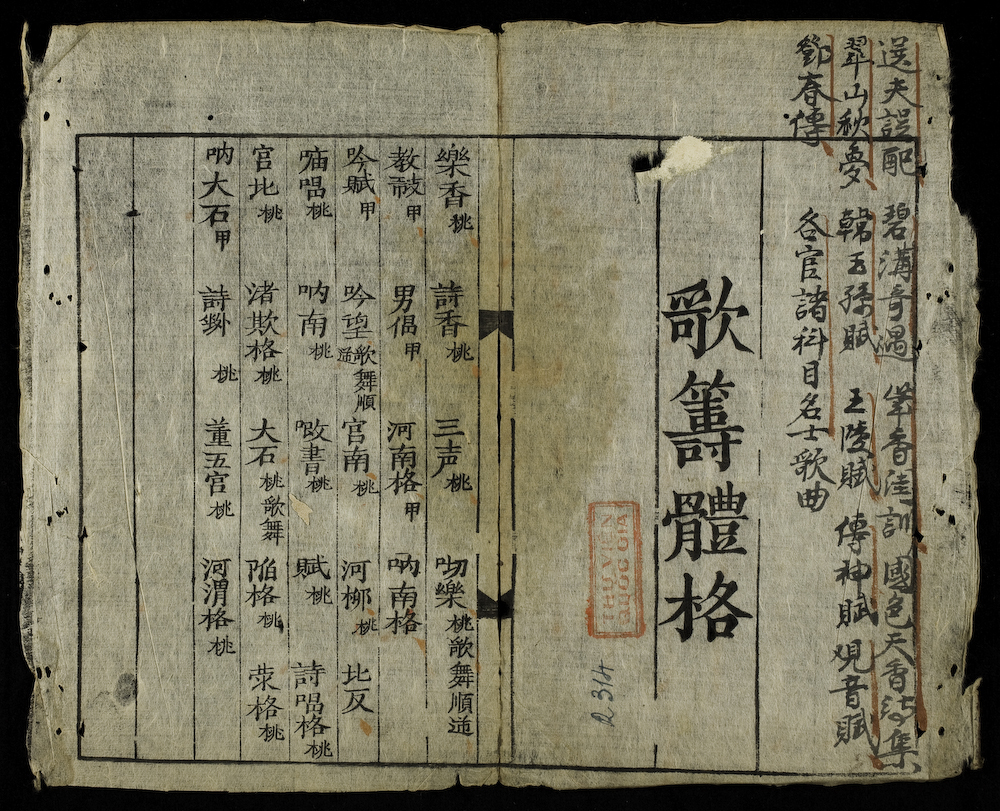 送夫誤配 碧溝奇遇 掌香迬訓 國色天香詩集
翠山秋夢 韓王孫賦 王陵賦 傳神賦 观音賦
鄧春傳 各官諸科目名士歌曲
歌籌體格
R314
樂香桃 詩香桃 三声桃 吻樂桃歌舞順逓
教𪔠甲 男倡甲 河南格甲 吶南格
吟賦甲 吟望歌舞順逓 官南桃 河柳桃 北反
唱桃 吶南桃 書桃 賦桃 詩唱格桃
宫北桃 渚欺格桃 大石桃歌舞 陷格桃 荥格桃
吶大石甲 詩 桃 董五宫桃 河渭格桃